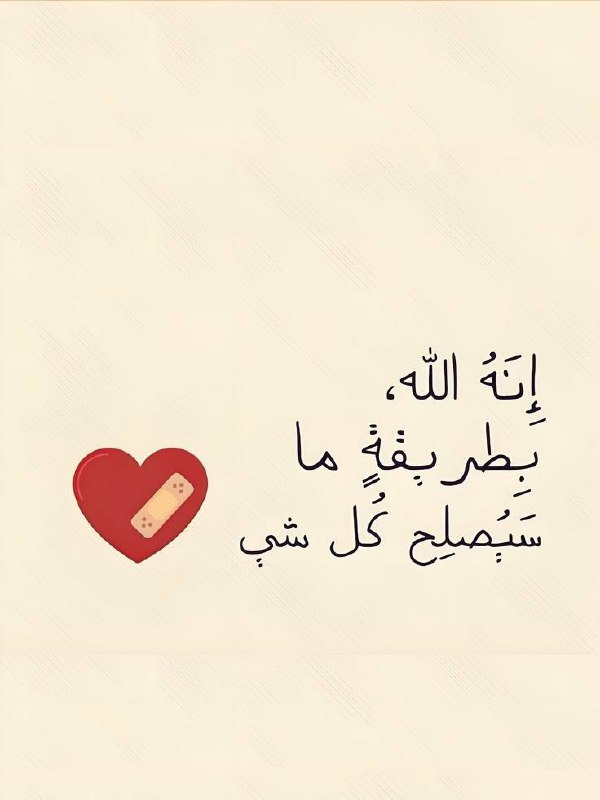 إِنَهُ الله،
بِطريقةٍ ما
سَيُصلِح كُل شي